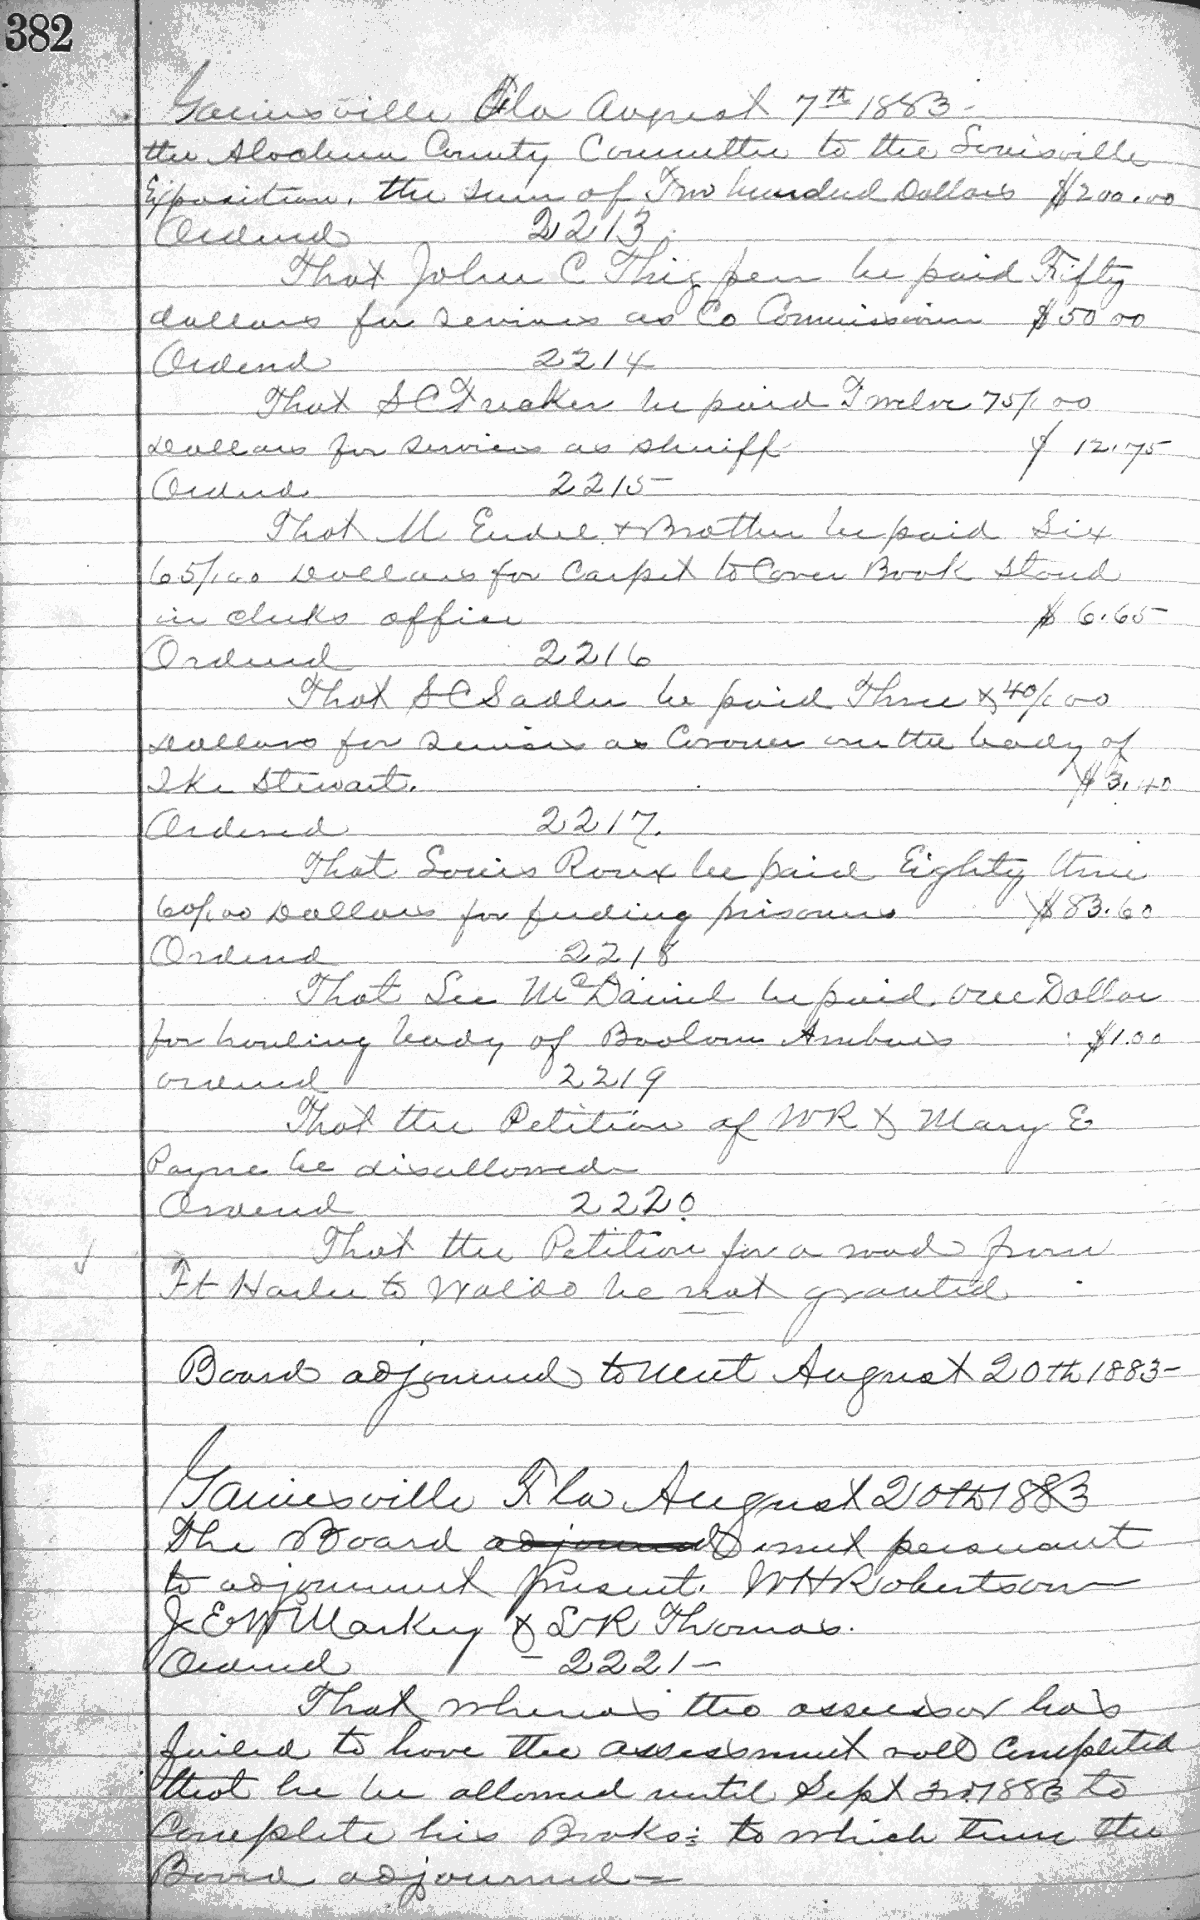 382
Gainesville Fla August 7th 1883-
the Alachua County Committee to the Louisville
Exposition. the sum of Two hundred Dollars $200.00
Ordered 2213.
That John C Thigpen be paid Fifty
dollars for services as Co Commissioner $50 00
Ordered 2214
That S C Tucker be paid Twelve 75/100
Dollars for services as sheriff $ 12.75
Ordered 2215-
That M Endel & Brother be paid Six
65/100 Dollars for Carpet to Cover Book Stand
in clerks office $ 6.65-
Ordered 2216
That S C Sadler be paid Three & 40/100
Dollars for services as Coroner on the body of
Ike Stewart. $3.40
Ordered 2217.
That Louis Roux be paid Eighty three
60/100 Dollars for feeding prisoners $83.60
Ordered 2218
That Lee McDaniel be paid one Dollar
for hauling body of Ambus $1.00
ordered 2219
That the Petition of W R & Mary E
Payne be disallowed
Ordered 2220.
That the Petition for a road from
Ft Harlee to Waldo be not granted
Board adjourned to meet August 20th 1883-
Gainesville Fla August 20th 1883
The Board adjourned met persuant
to adjournment Present. W H Robertson
J E W Markey & L R Thomas.
Ordered - 2221 -
That whereas the assessor has
failed to have the assessment roll completed
that he be allowed until Sept 3rd 1883 to
Complete his Books: to which time the
Board adjourned -